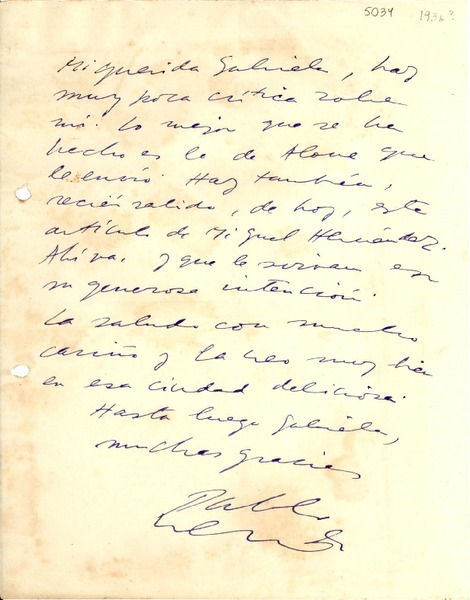 5034 1936?
Mi querida Gabriela, hay
muy poca crítica sobre
mí. Lo mejor que se ha
hecho es lo de Alone que
le envío. Hay también,
recién salido, de hoy, este
artículo de Miguel Hernández.
Ahí va. Y que le sirvan en
su generosa intención.
La saludo con mucho
cariño y la veo muy bien
en esa ciudad deliciosa.
Hasta luego Gabriela,
muchas gracias
Pablo
Neruda